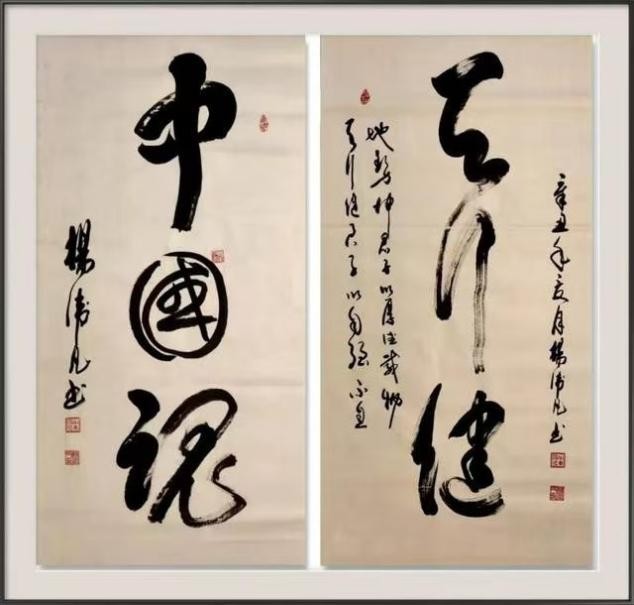 中國魂
楊凡书
天行健
天行健君子以自强不息
地势坤君子以厚德載物
辛丑年亥月楊凡书